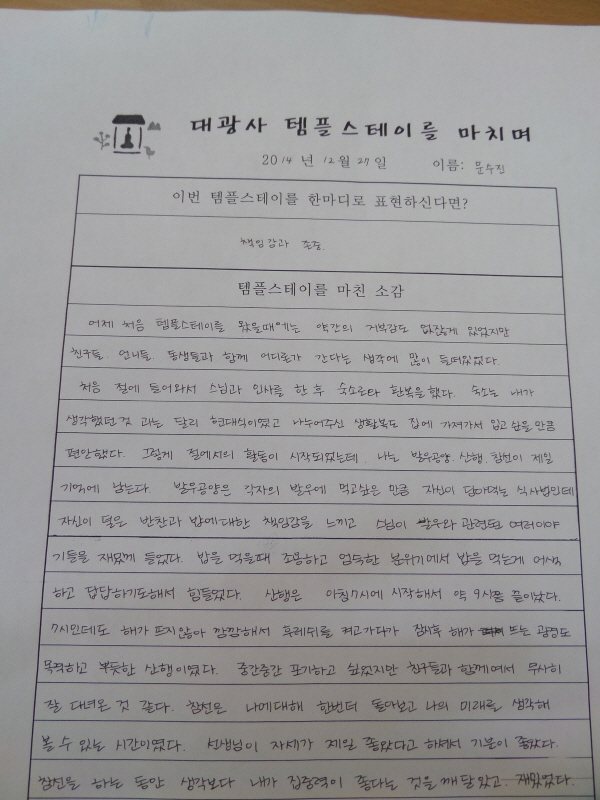 대광사 템플스테이를 마치며
2014 년 12월 27일 이름: 문수진
이번 템플스테이를 한마디로 표현하신다면?
책임감과 존중.
템플스테이를 마친 소감
어제 처음 템플스테이를 왔을때에는 약간의 거부감도 없잖게 있었지만
친구들, 언니들, 동생들과 함께 어디론가 간다는 생각에 많이 들떠있었다.
처음 절에 들어와서 스님과 인사를 한 후 숙소로가 환복을 했다. 숙소는 내가
생각했던것 과는 달리 현대식이였고 나누어주신 생활복도 집에 가져가서 입고 싶을 만큼
편안했다. 그렇게 절에서의 활동이 시작되었는데, 나는 발우공양, 산행, 참선이 제일
기억에 남는다. 발우공양은 각자의 발우에 먹고싶은 만큼 자신이 담아먹는 식사법인데
자신이 덜은 반찬과 밥에대한 책임감을 느끼고 스님이 발우와 관련된 여러이야
기들을 재밌게 들었다. 밥을 먹을때 조용하고 엄숙한 분위기에서 밥을 먹는게 어색
하고 답답하기도해서 힘들었다. 산행은 아침7시에 시작해서 약 9시쯤 끝이났다.
7시인데도 해가 뜨지않아 깜깜해서 후레쉬를 켜고가다가 잠시후 해가 뜨는 광경도
목격하고 뿌듯한 산행이였다. 중간중간 포기하고 싶었지만 친구들과 함께여서 무사히
잘 다녀온 것 같다. 참선은 나에대해 한번더 돌아보고 나의 미래를 생각해
볼 수 있는 시간이였다. 선생님이 자세가 제일 좋았다고 하셔서 기분이 좋았다.
참선을 하는 동안 생각보다 내가 집중력이 좋다는 것을 깨달았고, 재밌었다.